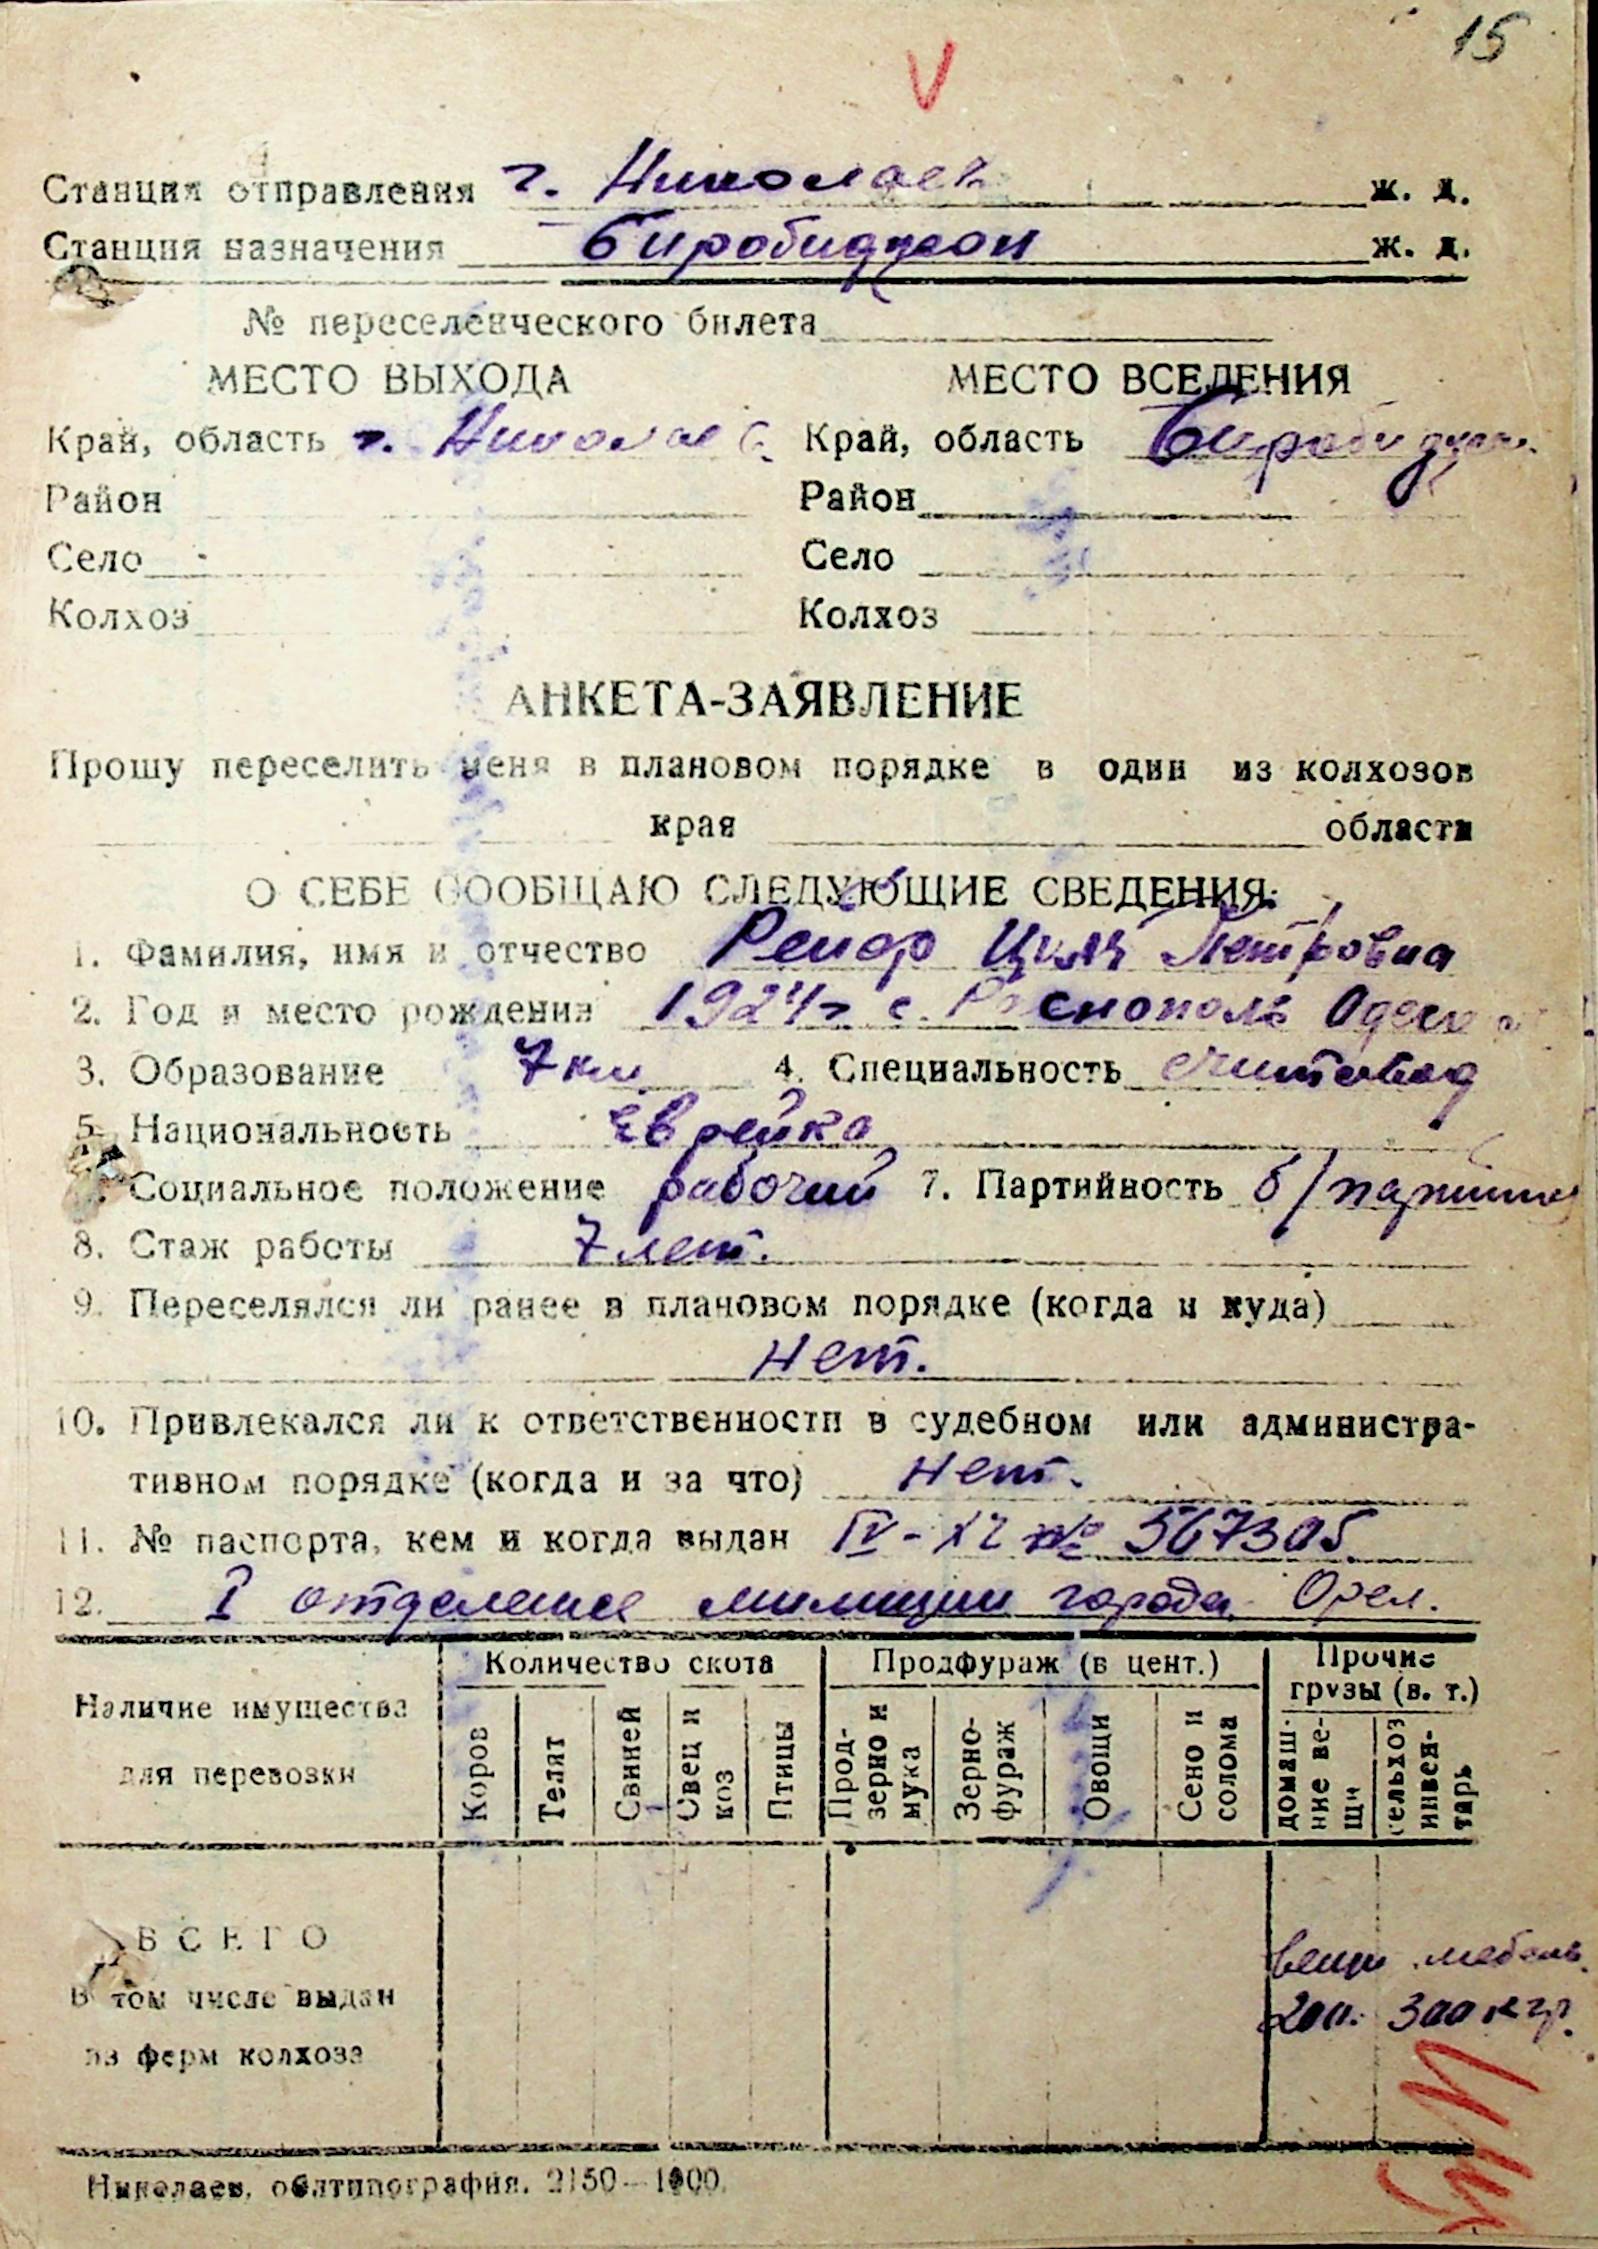 15
V
Станция отправления г. Николаев ж. д.
Станция назначения Биробиджан ж. д.
№ переселенческого билета
МЕСТО ВЫХОДА МЕСТО ВСЕЛЕНИЯ
Край, область г. Николаев Край, область Биробиджан.
Район Район
Село Село
Колхоз Колхоз
АНКЕТА-ЗАЯВЛЕНИЕ
Прошу переселить меня в плановом порядке в один из колхозов
края области
О СЕБЕ СООБЩАЮ СЛЕДУЮЩИЕ СВЕДЕНИЯ:
1. Фамилия, имя и отчество Петровна
2. Год и место рождения 1924 г с. Одесск
3. Образование 7 кл 4. Специальность счетовод
5. Национальность Еврейка
Социальное положение рабочий 7. Партийность
8. Стаж работы 7 лет.
9. Переселялся ли ранее в плановом порядке (когда и куда)
Нет.
10. Привлекался ли к ответственности в судебном или администра-
тивном порядке (когда и за что) Нет.
11. № паспорта, кем и когда выдан № 567305
12. I отделение милиции города Орел.
Наличие имущества для перевозки Количество скота Продфураж (в цент.) Прочие грузы (в. т.)
Коров Телят Свиней Овец и коз Птицы Прод- зерно и мука Зерно- фураж Овощи Сено и солома домаш- ние ве- щи сельхоз инвен- тарь
ВСЕГО вещи мебель.
В том числе выдан 300 кгр.
из ферм колхоза
Николаев, облтипография. 2150—1000.